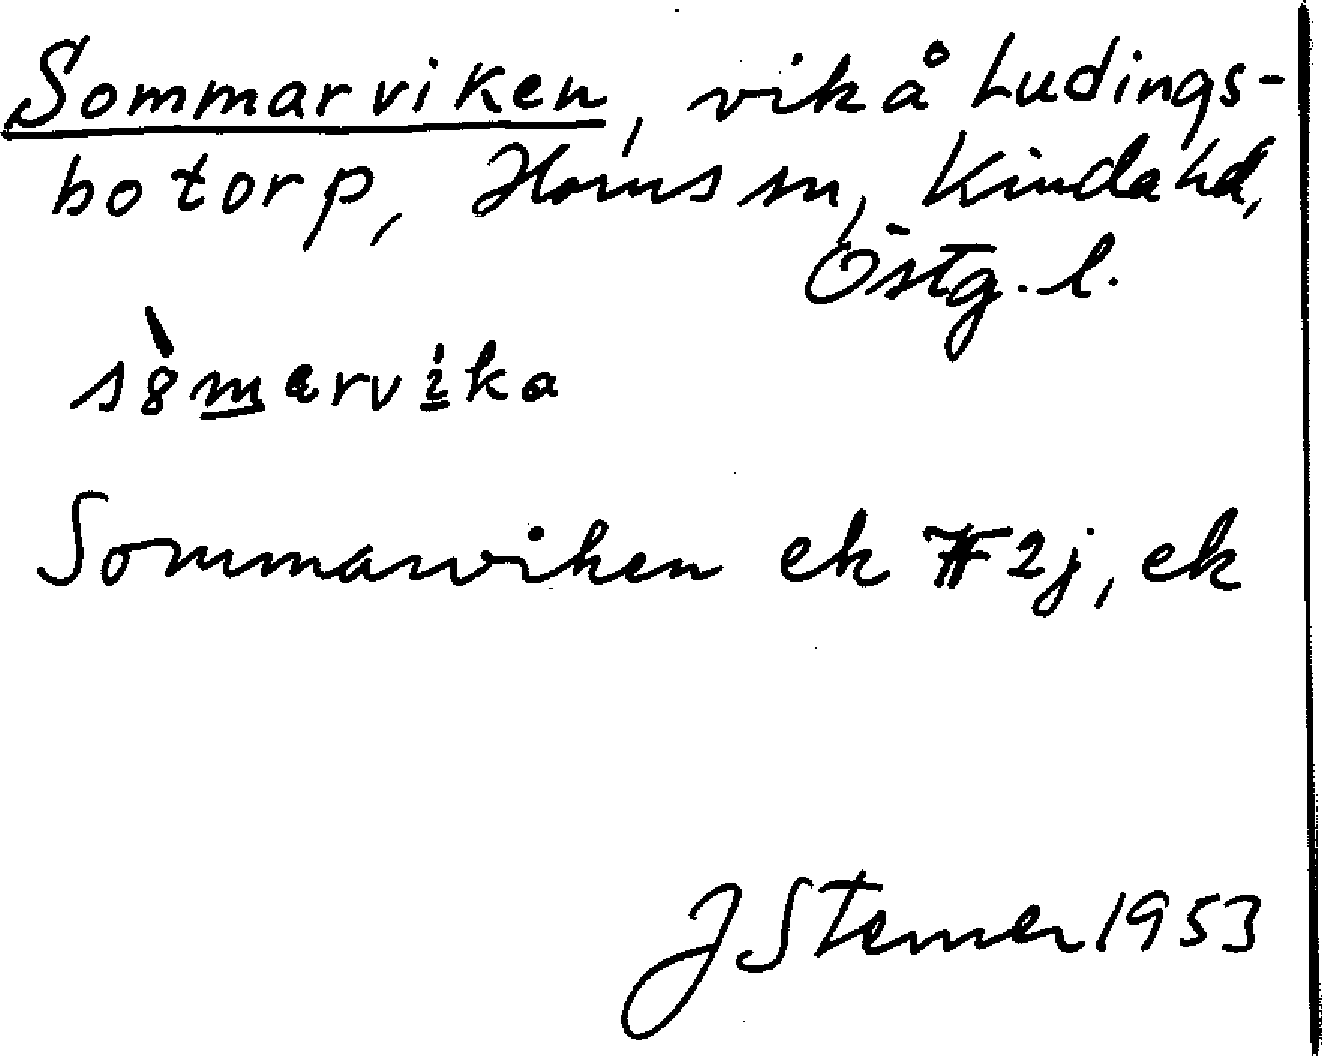 Sommarviken, vik å Ludings-
botorp, Horns sn, Kinda hd,
Östg. l.
sò̀marvika
Sommarviken ek 7F2j, ek
J Sterner 1953